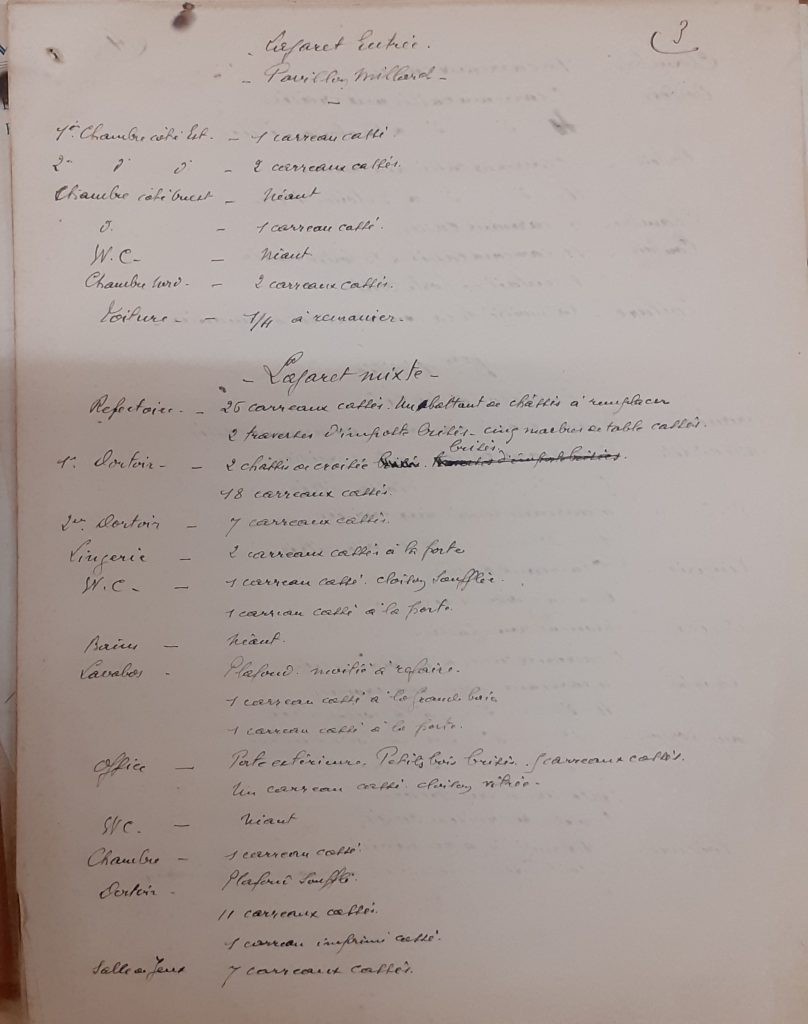 3
- Lazaret Entrée.
- Pavillon Millard -
1re Chambre côté Est. - 1 carreau cassé.
2e d d - 2 carreaux cassés.
Chambre côté ouest - Néant
d. - 1 carreau cassé.
W.C. - Néant
Chambre nord. - 2 carreaux cassés.
Toiture - - 1/4 à remanier.
- Lazaret mixte -
Refectoire. - 26 carreaux cassés. Un battant de châssis à remplacer
2 traverses d'imposte brisés - cinq marbres de table cassés.
1er Dortoir - - 2 châssis de croisée brisés.
18 carreaux cassés.
2me Dortoir - 7 carreaux cassés.
Lingerie - 2 carreaux cassés à la porte
W.C. - - 1 carreau cassé. cloison soufflée.
1 carreau cassé à la porte.
Bains - Néant.
Lavabos - Plafond. moitié à refaire.
1 carreau cassé à la grande baie
1 carreau cassé à la porte.
Office - Porte extérieure. Petits bois brisés. 5 carreaux cassés.
Un carreau cassé. cloison vitrée.
WC. - Néant
Chambre - 1 carreau cassé.
Dortoir - Plafond soufflé.
11 carreaux cassés.
1 carreau imprimé cassé.
Salle de Jeux 7 carreaux cassés.